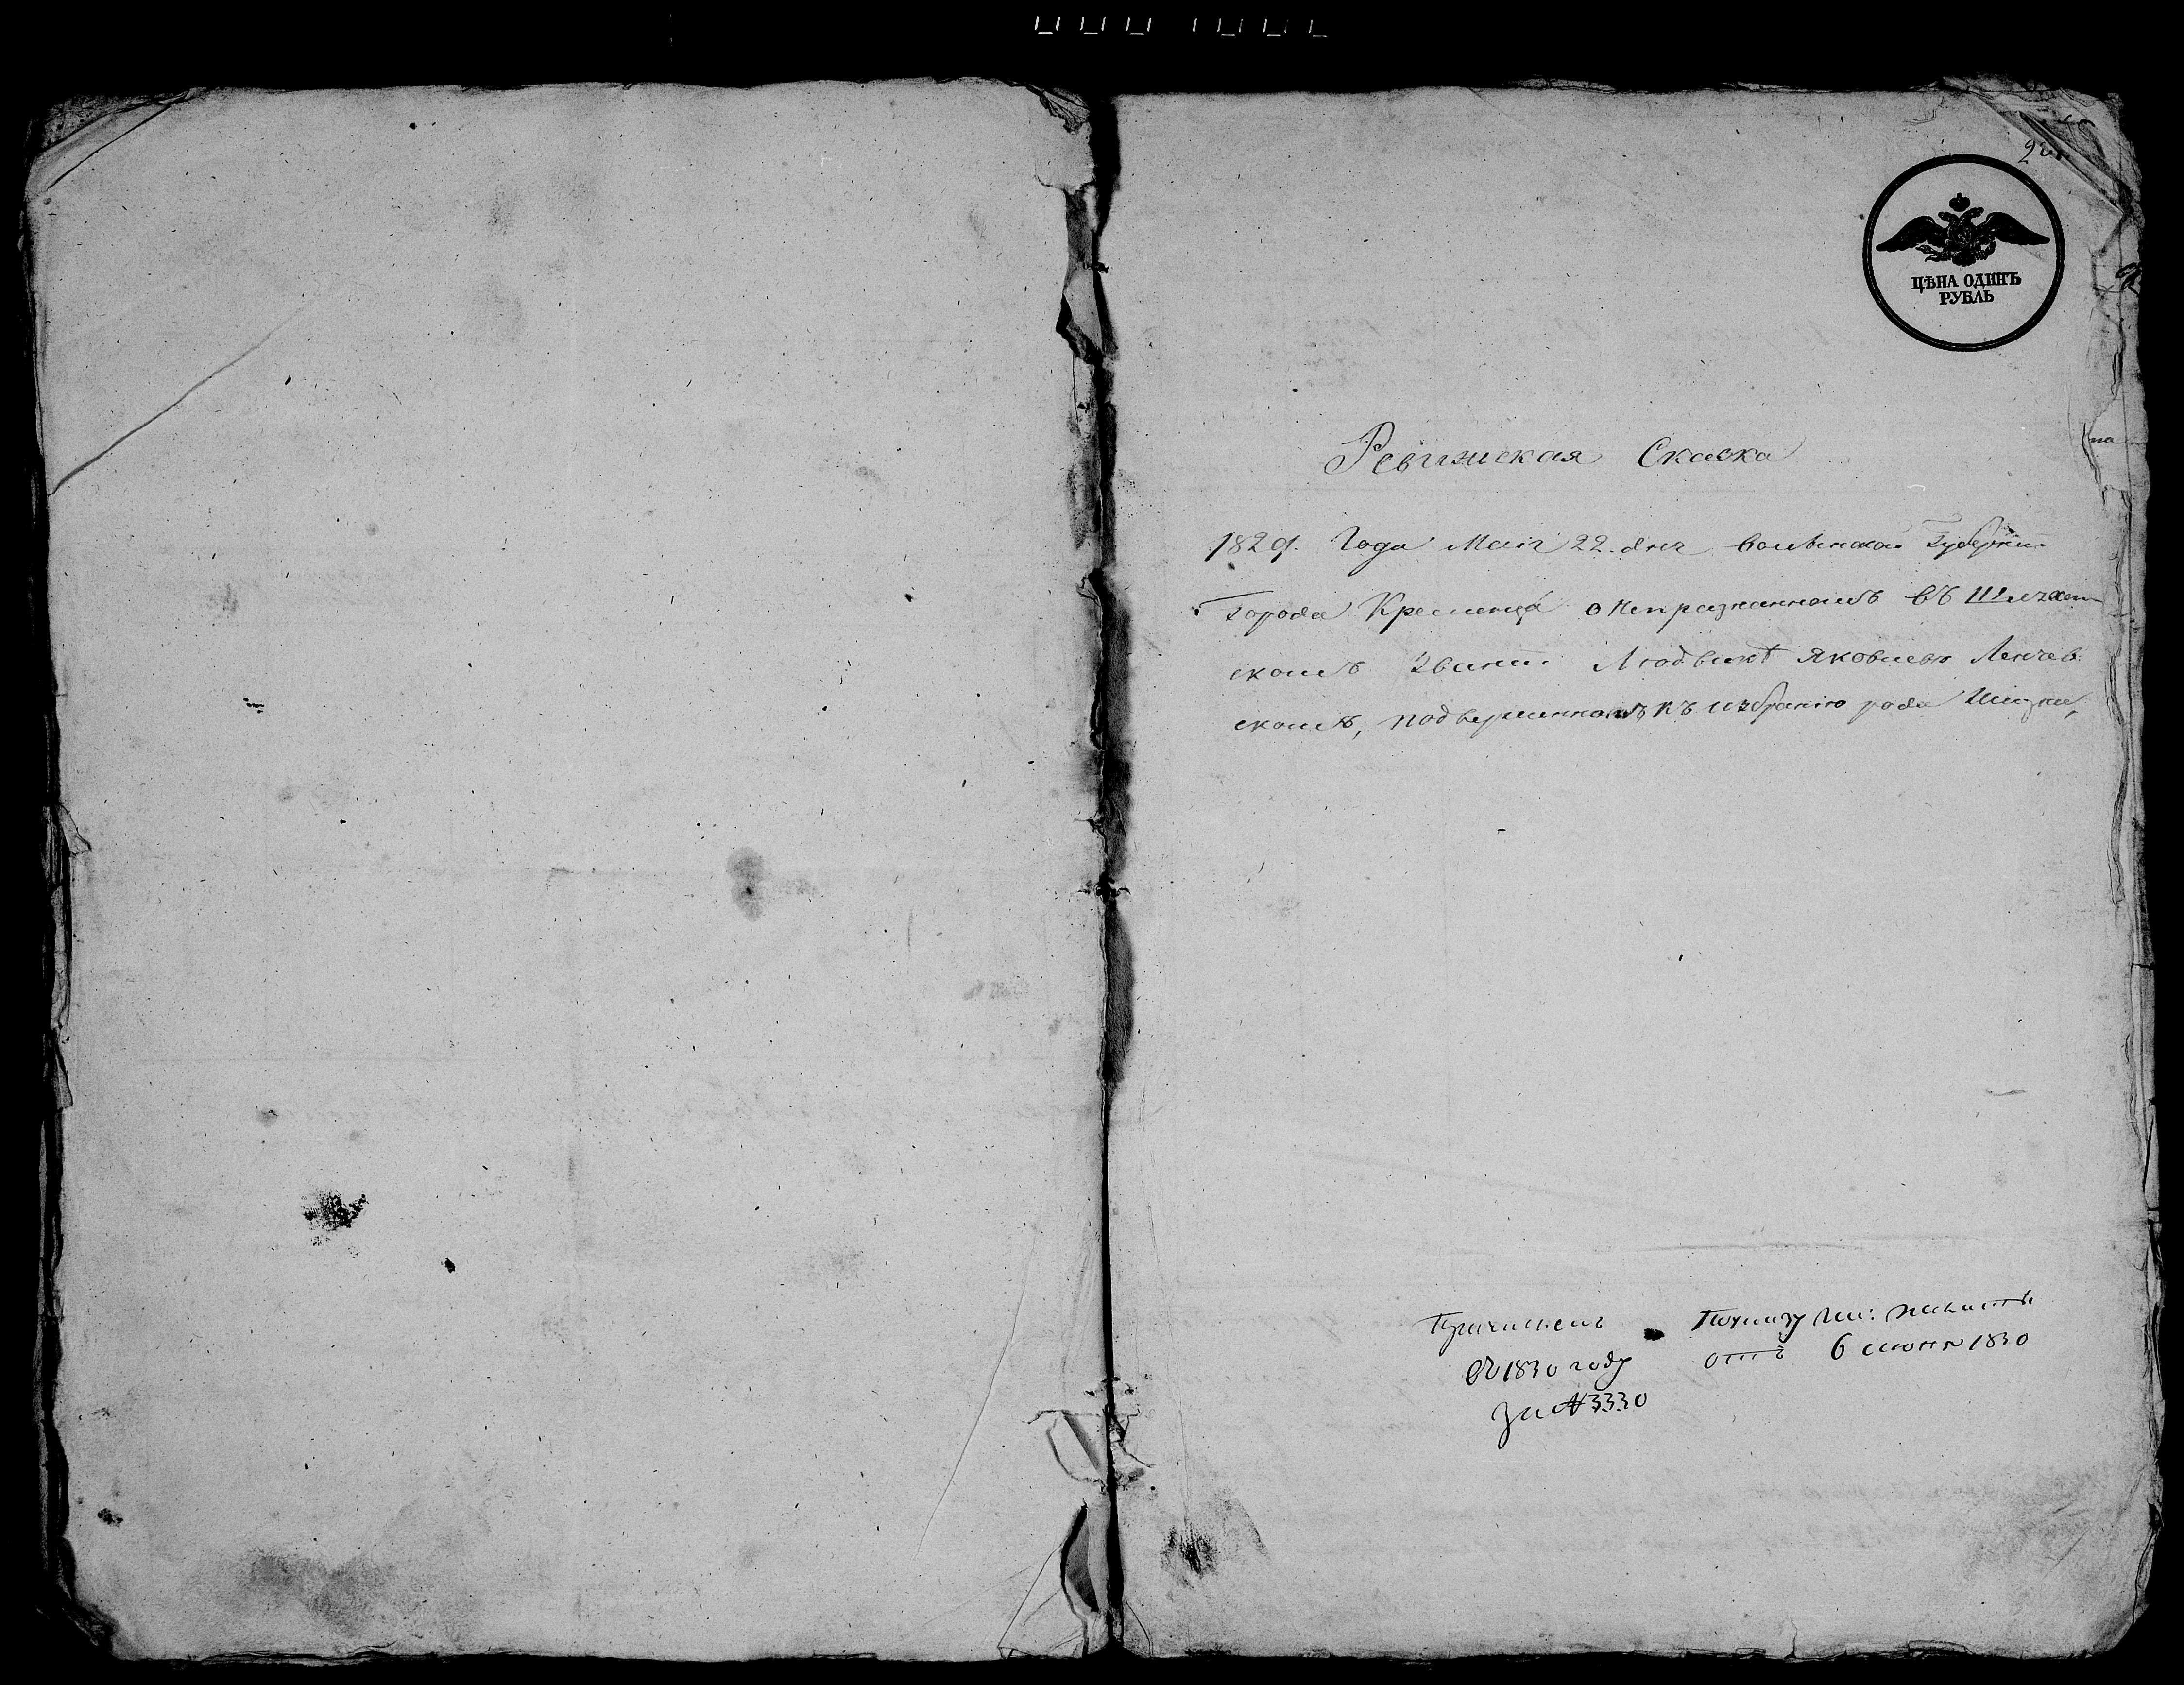 ЦѢНА ОДИНЪ
РУБЛЬ
Ревижская Скаска
1829. Года Маія 22. дня Волынской Губернии
Города Кременца о непризнанномъ въ Шляхет
скомъ Званіи Людвикѣ Яковлевѣ Ленчев
скомъ, подверженномъ къ избранію рода жизни,
Причисленъ
въ 1830 году
за № 3330
Поуказу палаты
отъ 6 июня 1830